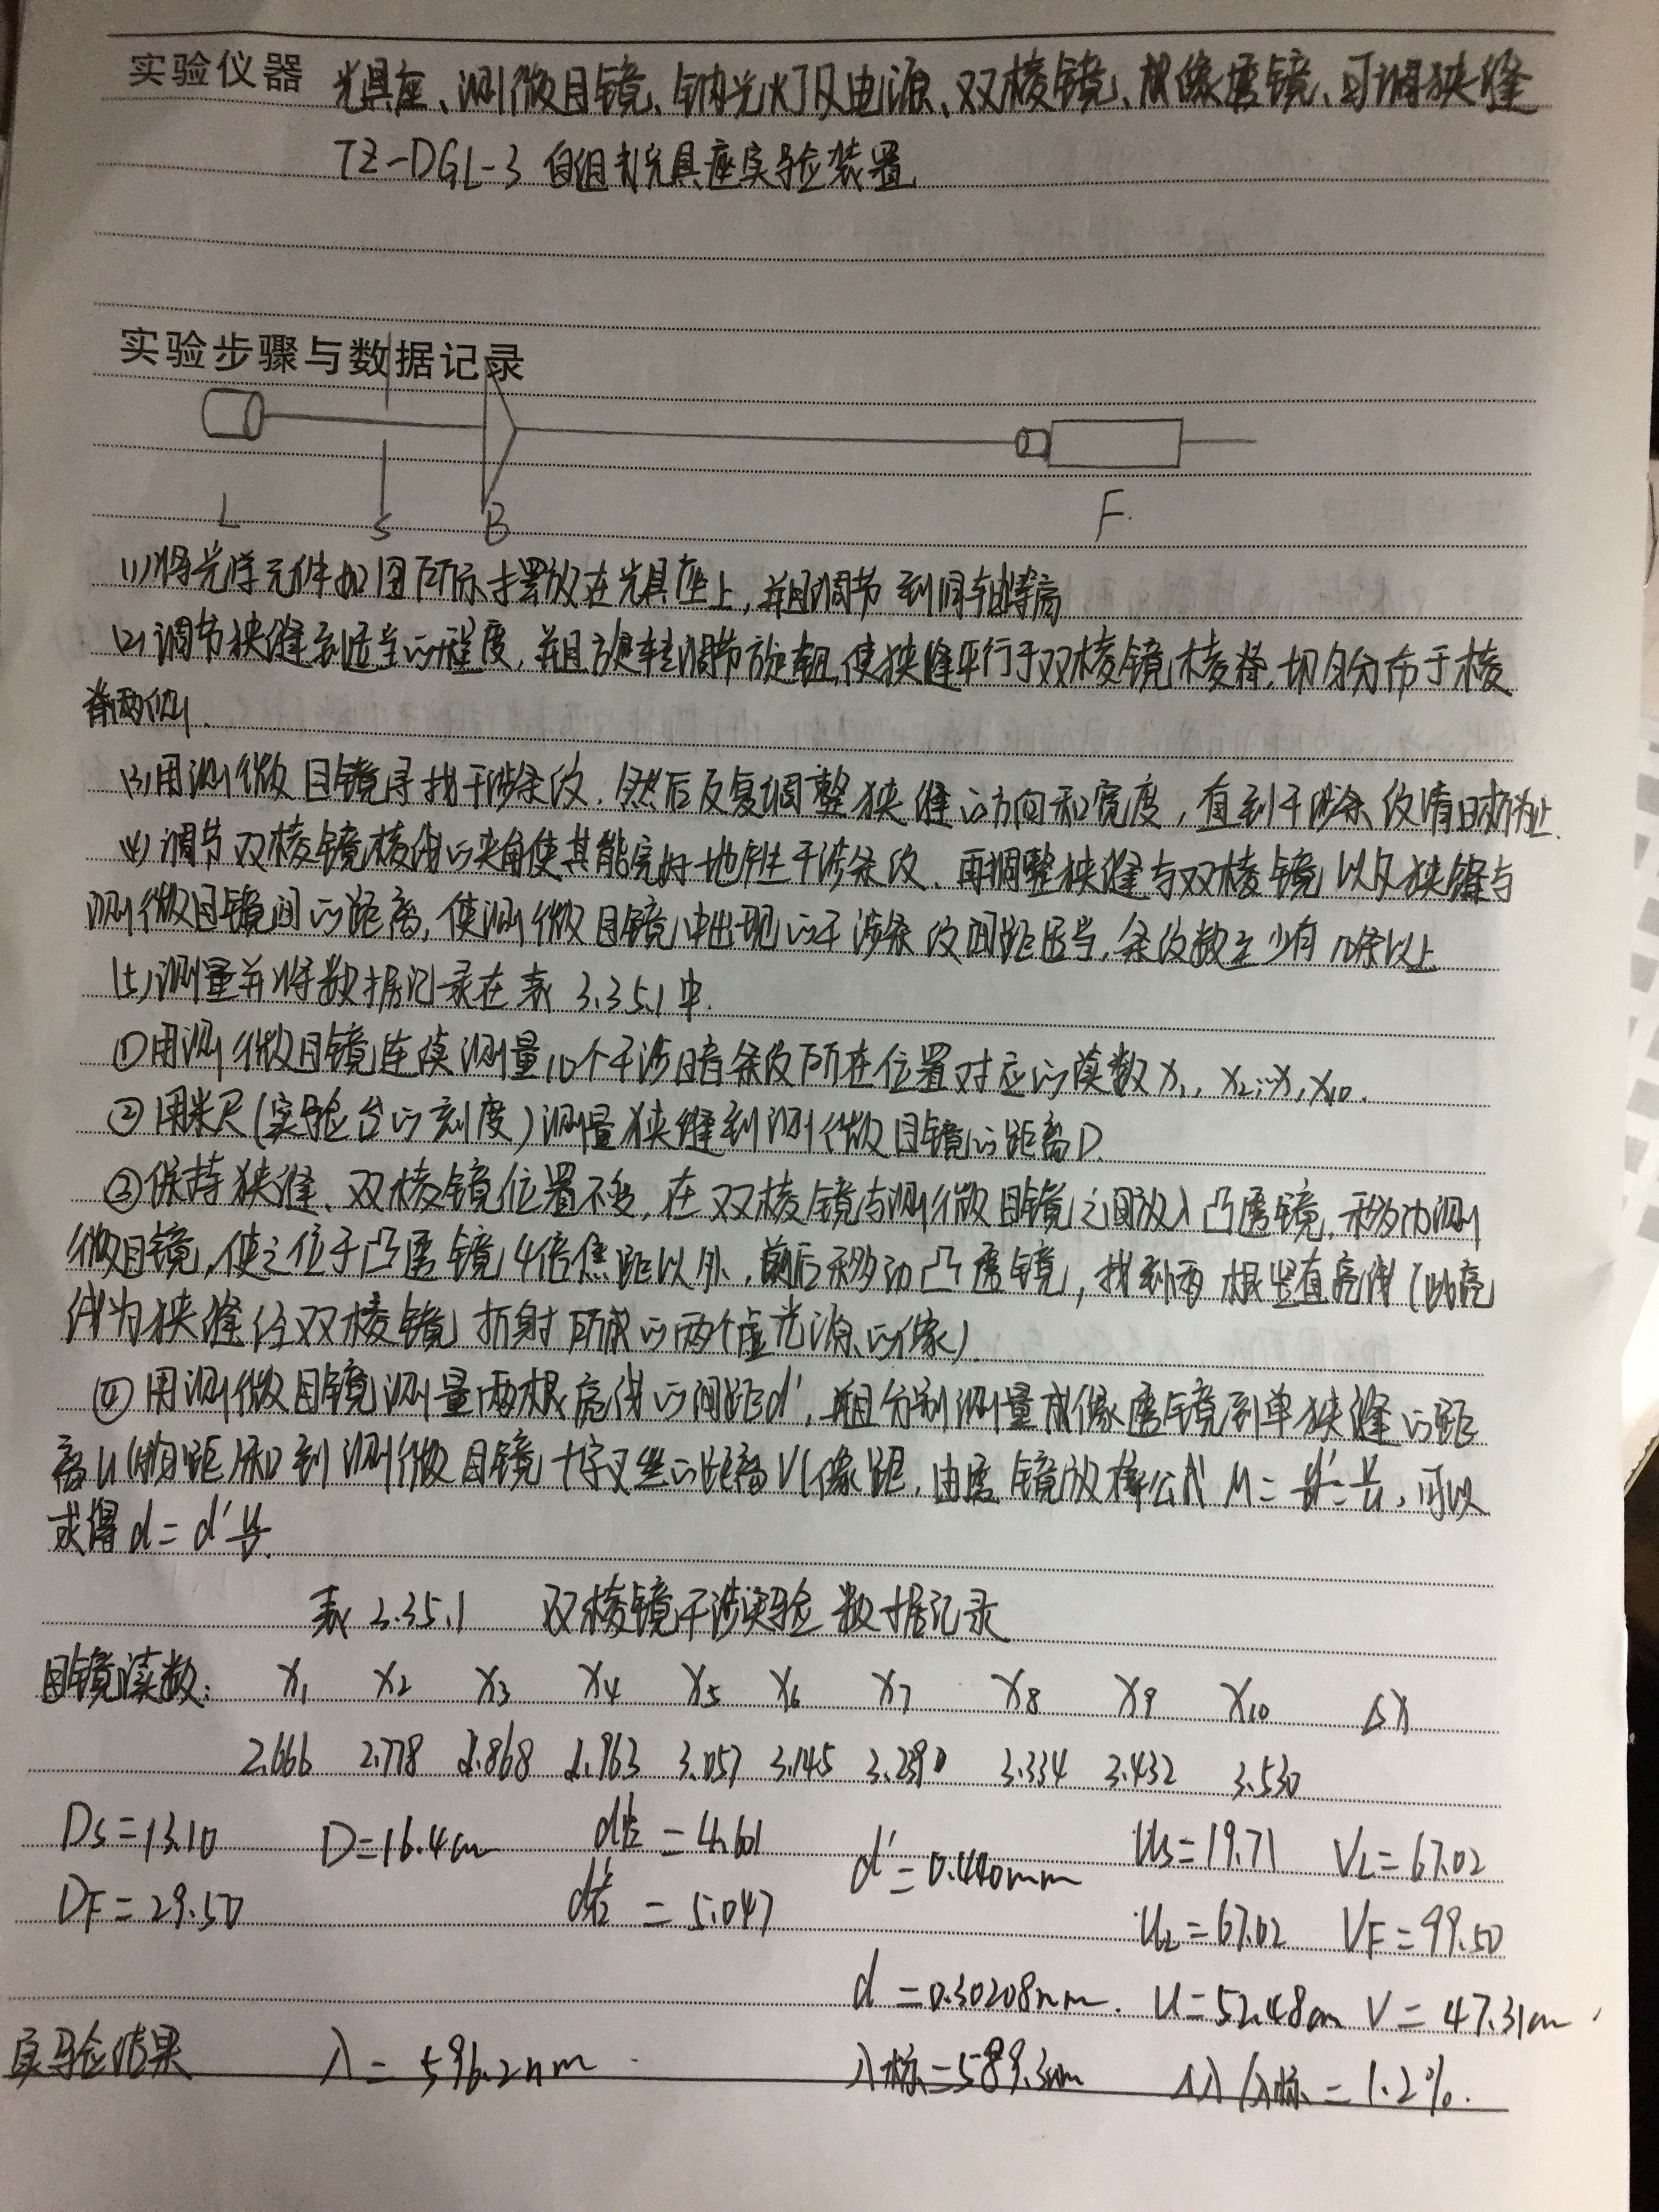 实验仪器 光具座、测微目镜、钠光灯及电源、双棱镜、成像透镜、可调狭缝
TZ-DGL-3 自组式光具座实验装置
实验步骤与数据记录
L S B F.
(1)将光学元件如图所示摆放在光具座上,并且调节到同轴等高
(2)调节狭缝到适当的程度,并且旋转调节旋钮,使狭缝平行于双棱镜棱脊,均匀分布于棱
脊两侧.
(3)用测微目镜寻找干涉条纹.然后反复调整狭缝的方向和宽度,直到干涉条纹清晰为止.
(4)调节双棱镜棱的夹角使其能完好地产生干涉条纹、再调整狭缝与双棱镜以及狭缝与
测微目镜间的距离,使测微目镜中出现的干涉条纹间距适当,条纹数至少有10条以上
(5)测量并将数据记录在表 3.35.1中.
①用测微目镜连续测量10个干涉暗条纹所在位置对应的读数x₁, x₂, … , x₁₀.
②用米尺(实验台的刻度)测量狭缝到测微目镜的距离D.
③保持狭缝、双棱镜位置不变,在双棱镜与测微目镜之间放入凸透镜,移动测
微目镜,使之位于凸透镜4倍焦距以外,前后移动凸透镜,找到两根竖直亮线(此亮
线为狭缝经双棱镜折射所成的两个虚光源的像).
④用测微目镜测量两根亮线的间距d',并且分别测量成像透镜到单狭缝的距
离u(物距)和到测微目镜十字叉丝的距离V(像距,由透镜放大率公式 M= ,可以
求得 d=d'u/v.
表 3.35.1 双棱镜干涉实验数据记录
目镜读数: x₁ x₂ x₃ x₄ x₅ x₆ x₇ x₈ x₉ x₁₀ Δx
2.666 2.778 2.868 2.963 3.057 3.145 3.334 3.432 3.530
Ds=13.10 D=16.4cm =4.601 d'=0.440mm Us=19.71 VL=67.02
DF=29.50 =5.047 UL=67.02 VF=99.50
d=0.30208mm. U=52.48cm V=47.31cm
实验结果 λ=596.2nm. λ标=589.3nm Δλ/λ标=1.2%.